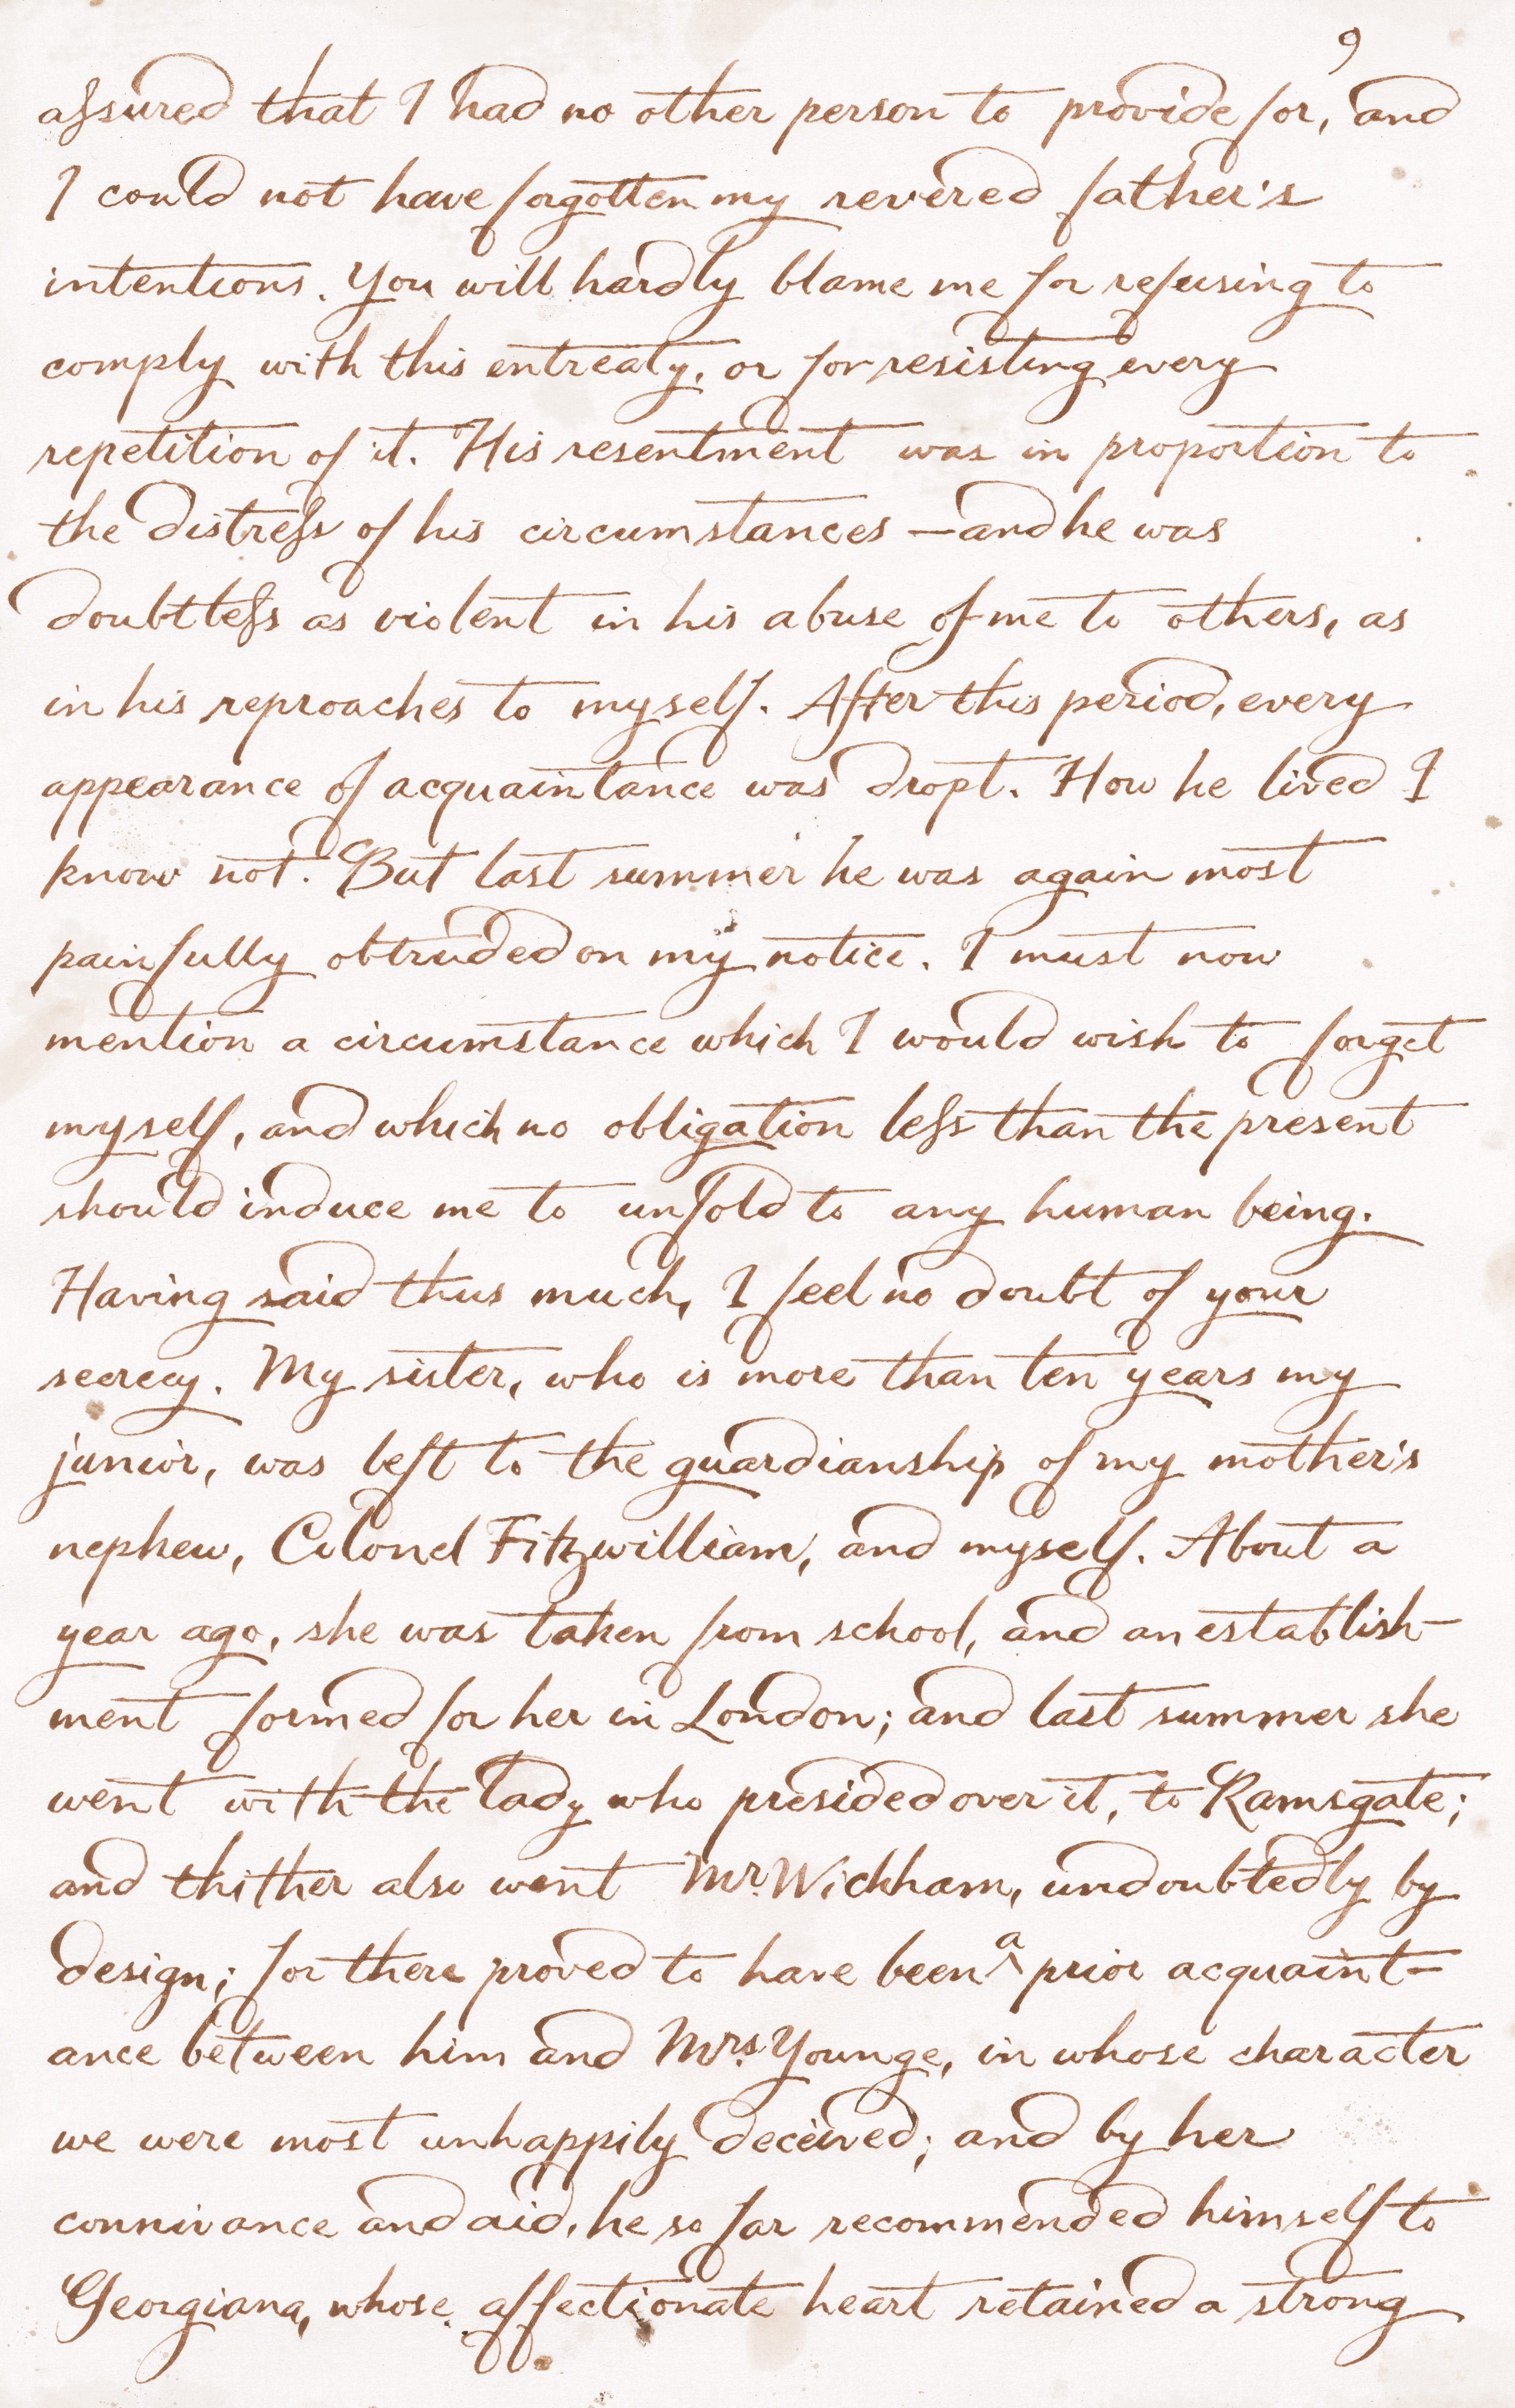 9
aſsured that I had no other person to provide for, and
I could not have forgotten my revered father's
intentions. You will hardly blame me for refusing to
comply with this entreaty, or for resisting every
repetition of it. His resentment was in proportion to
the distreſs of his circumstances — and he was
doubtleſs as violent in his abuse of me to others, as
in his reproaches to myself. After this period, every
appearance of acquaintance was dropt. How he lived I
know not. But last summer he was again most
painfully obtruded on my notice. I must now
mention a circumstance which I would wish to forget
myself, and which no obligation leſs than the present
should induce me to unfold to any human being.
Having said thus much, I feel no doubt of your
secrecy. My sister, who is more than ten years my
junior, was left to the guardianship of my mother's
nephew, Colonel Fitzwilliam, and myself. About a
year ago, she was taken from school, and an establish-
ment formed for her in London; and last summer she
went with the lady who presided over it, to Ramsgate;
and thither also went Mr. Wickham, undoubtedly by
design; for there proved to have been ^a prior acquaint=
ance between him and Mrs. Younge, in whose character
we were most unhappily deceived; and by her
connivance and aid, he so far recommended himself to
Georgiana, whose affectionate heart retained a strong